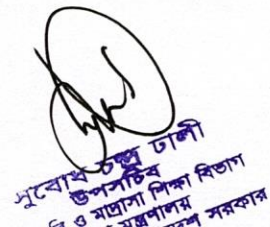 সুবোধ চন্দ্র ঢালী
উপসচিব
ও মাদ্রাসা শিক্ষা বিভাগ
মন্ত্রণালয়
সরকার